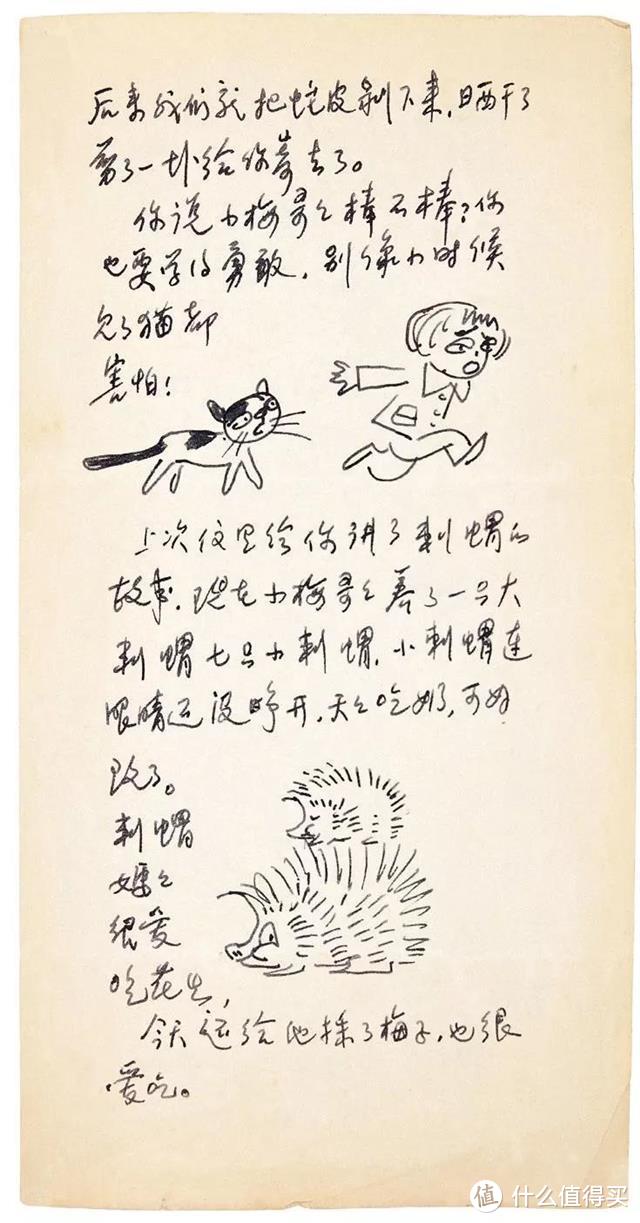 后来我们就把蛇皮剥下来,晒干了
剪了一块给你寄去了。
你说小梅哥々棒不棒?你
也要学得勇敢,别像小时候
见了猫都
害怕!
上次这里给你讲了刺猬的
故事,现在小梅哥々养了一只大
刺猬七只小刺猬,小刺猬连
眼睛还没睁开,天々吃奶,可好
玩了。
刺猬
妈々
很爱
吃花生,
今天还给他採了梅子,也很
爱吃。
值 什么值得买